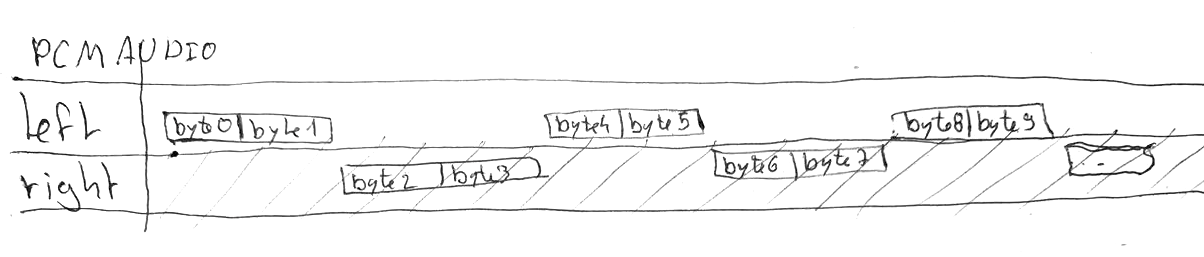 PCM AUDIO
left byte0 byte1 byte4 byte5 byte8 byte9
right byte2 byte3 byte6 byte7 ...